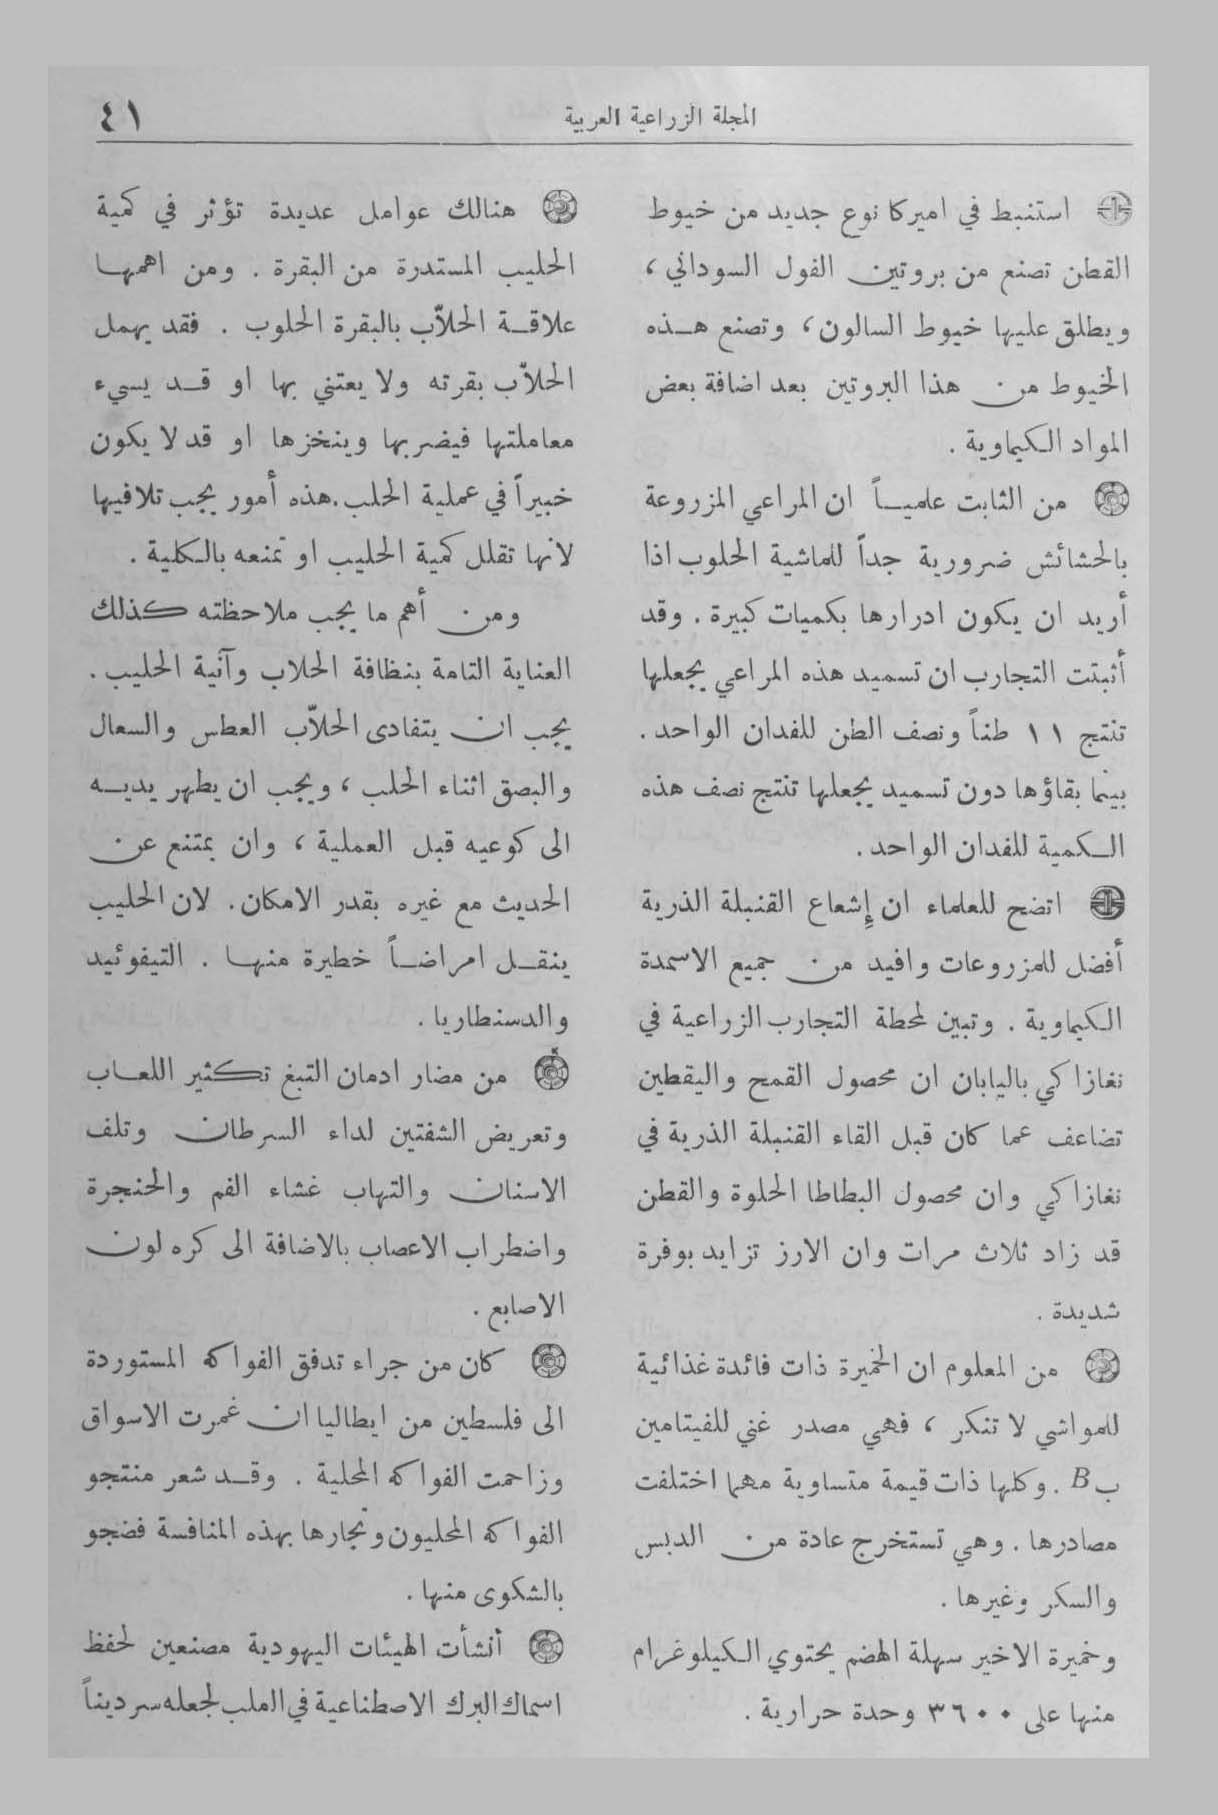 المجلة الزراعية العربية
٤١
استنبط في اميركا نوع جديد من خيوط
القطن تصنع من بروتين الفول السوداني ،
ويطلق عليها خيوط السالون ، وتصنع هذه
الخيوط من هذا البروتين بعد اضافة بعض
المواد الكيماوية .
من الثابت علمياً ان المراعي المزروعة
بالحشائش ضرورية جداً للماشية الحلوب اذا
أريد ان يكون ادرارها بكميات كبيرة . وقد
أثبتت التجارب ان تسميد هذه المراعي يجعلها
تنتج ١١ طناً ونصف الطن للفدان الواحد .
بينما بقاؤها دون تسميد يجعلها تنتج نصف هذه
الكمية للفدان الواحد .
اتضح للعلماء ان إشعاع القنبلة الذرية
أفضل للمزروعات وافيد من جميع الاسمدة
الكيماوية . وتبين لمحطة التجارب الزراعية في
نغازاكي باليابان ان محصول القمح واليقطين
تضاعف عما كان قبل القاء القنبلة الذرية في
نغازاكي وان محصول البطاطا الحلوة والقطن
قد زاد ثلاث مرات وان الارز تزايد بوفرة
شديدة .
من المعلوم ان الخميرة ذات فائدة غذائية
للمواشي لا تنكر ، فهي مصدر غني للفيتامين
ب B . وكلها ذات قيمة متساوية مهما اختلفت
مصادرها . وهي تستخرج عادة من الدبس
والسكر وغيرها .
وخميرة الاخير سهلة الهضم يحتوي الكيلوغرام
منها على ٣٦٠٠ وحدة حرارية .
هنالك عوامل عديدة تؤثر في كمية
الحليب المستدرة من البقرة . ومن اهمها
علاقة الحلاّب بالبقرة الحلوب . فقد يهمل
الحلاّب بقرته ولا يعتني بها او قد يسيء
معاملتها فيضربها وينخزها او قد لا يكون
خبيراً في عملية الحلب . هذه أمور يجب تلافيها
لانها تقلل كمية الحليب او تمنعه بالكلية .
ومن أهم ما يجب ملاحظته كذلك
العناية التامة بنظافة الحلاب وآنية الحليب .
يجب ان يتفادى الحلاّب العطس والسعال
والبصق اثناء الحلب ، ويجب ان يطهر يديه
الى كوعيه قبل العملية ، وان يمتنع عن
الحديث مع غيره بقدر الامكان . لان الحليب
ينقل امراضاً خطيرة منها . التيفوئيد
والدسنطاريا .
من مضار ادمان التبغ تكثير اللعاب
وتعريض الشفتين لداء السرطان وتلف
الاسنان والتهاب غشاء الفم والحنجرة
واضطراب الاعصاب بالاضافة الى كره لون
الاصابع .
كان من جراء تدفق الفواكه المستوردة
الى فلسطين من ايطاليا ان غمرت الاسواق
وزاحمت الفواكه المحلية . وقد شعر منتجو
الفواكه المحليون وتجارها بهذه المنافسة فضجو
بالشكوى منها .
أنشأت الهيئات اليهودية مصنعين لحفظ
اسماك البرك الاصطناعية في العلب لجعله سرديناً